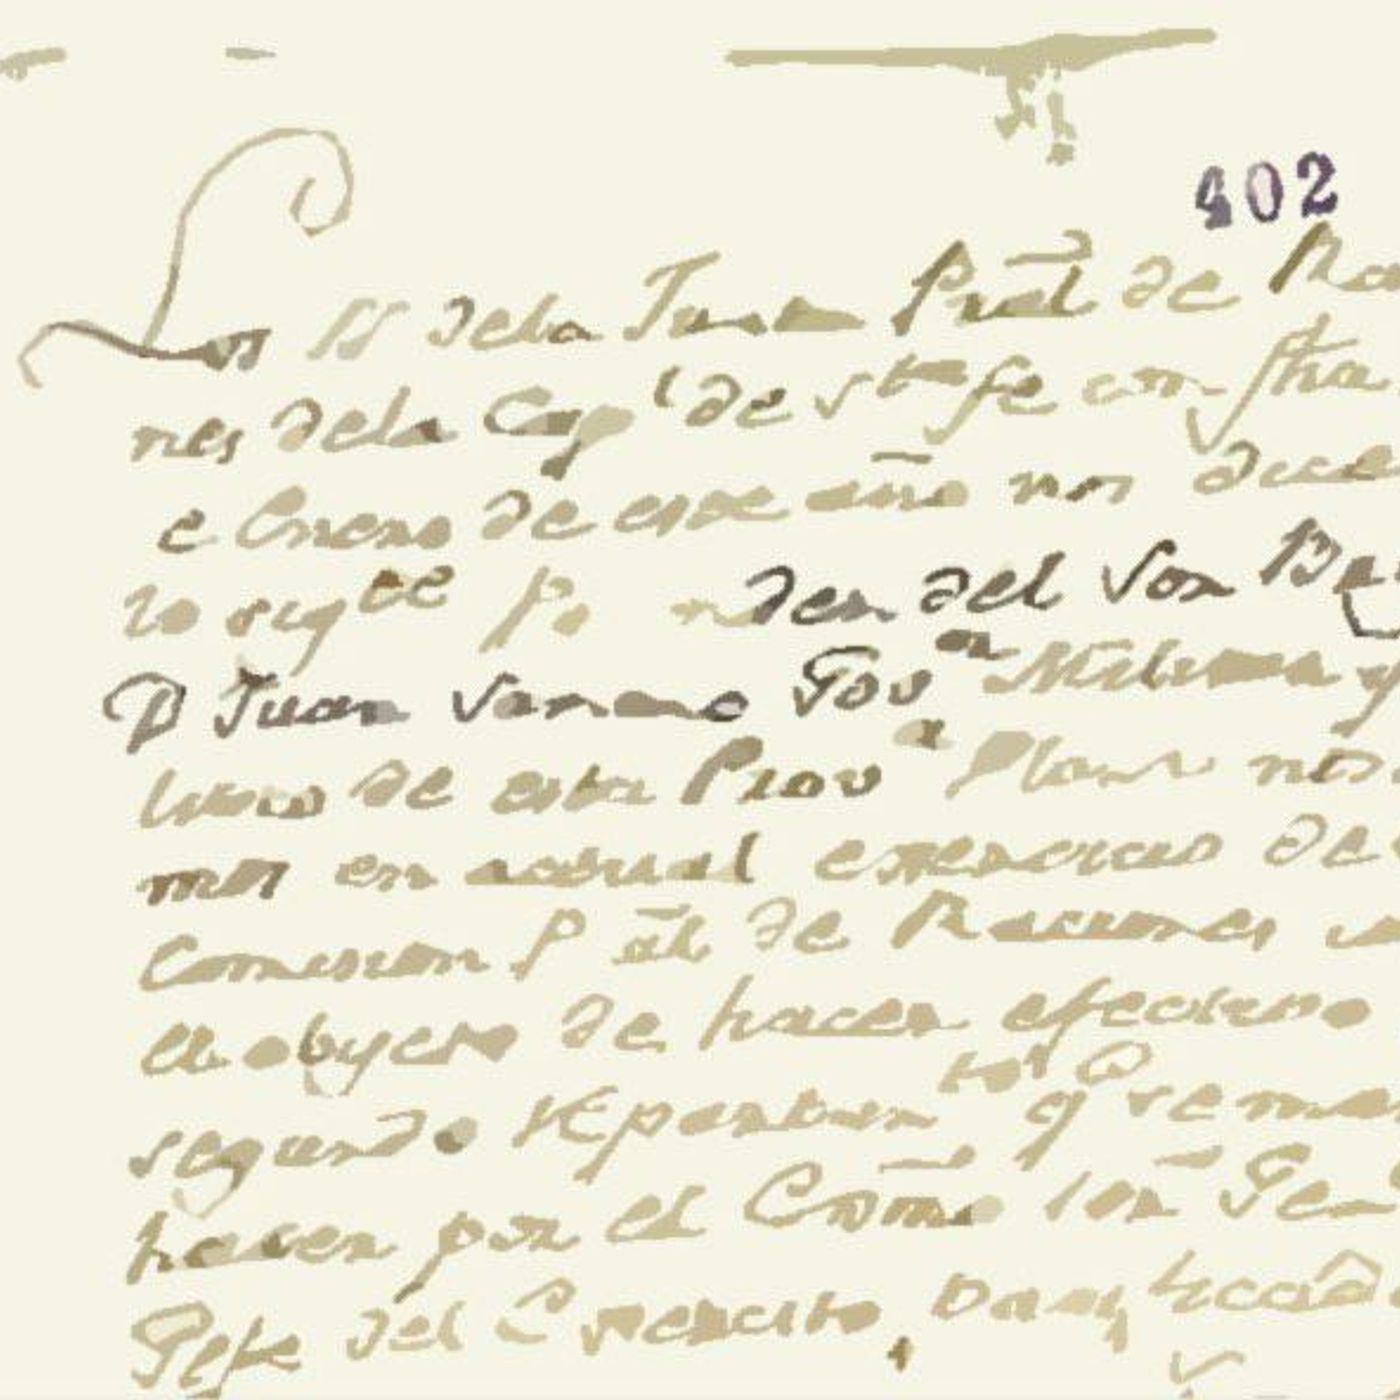 402
Los SS dela Junta Prâl de Ra
nes dela Cap l de Sta fe con fha
e Enero de este año nos dice
lo sigte Po nden del Sor
D Juan Gov or Militar y
de esta Prov a
mos en actual exersicio de
Comision P âl de Raciones
el objeto de hacer efectivo
segundo repartim to q se
hacer por el Cōmo Gen
Gefe del Exercito